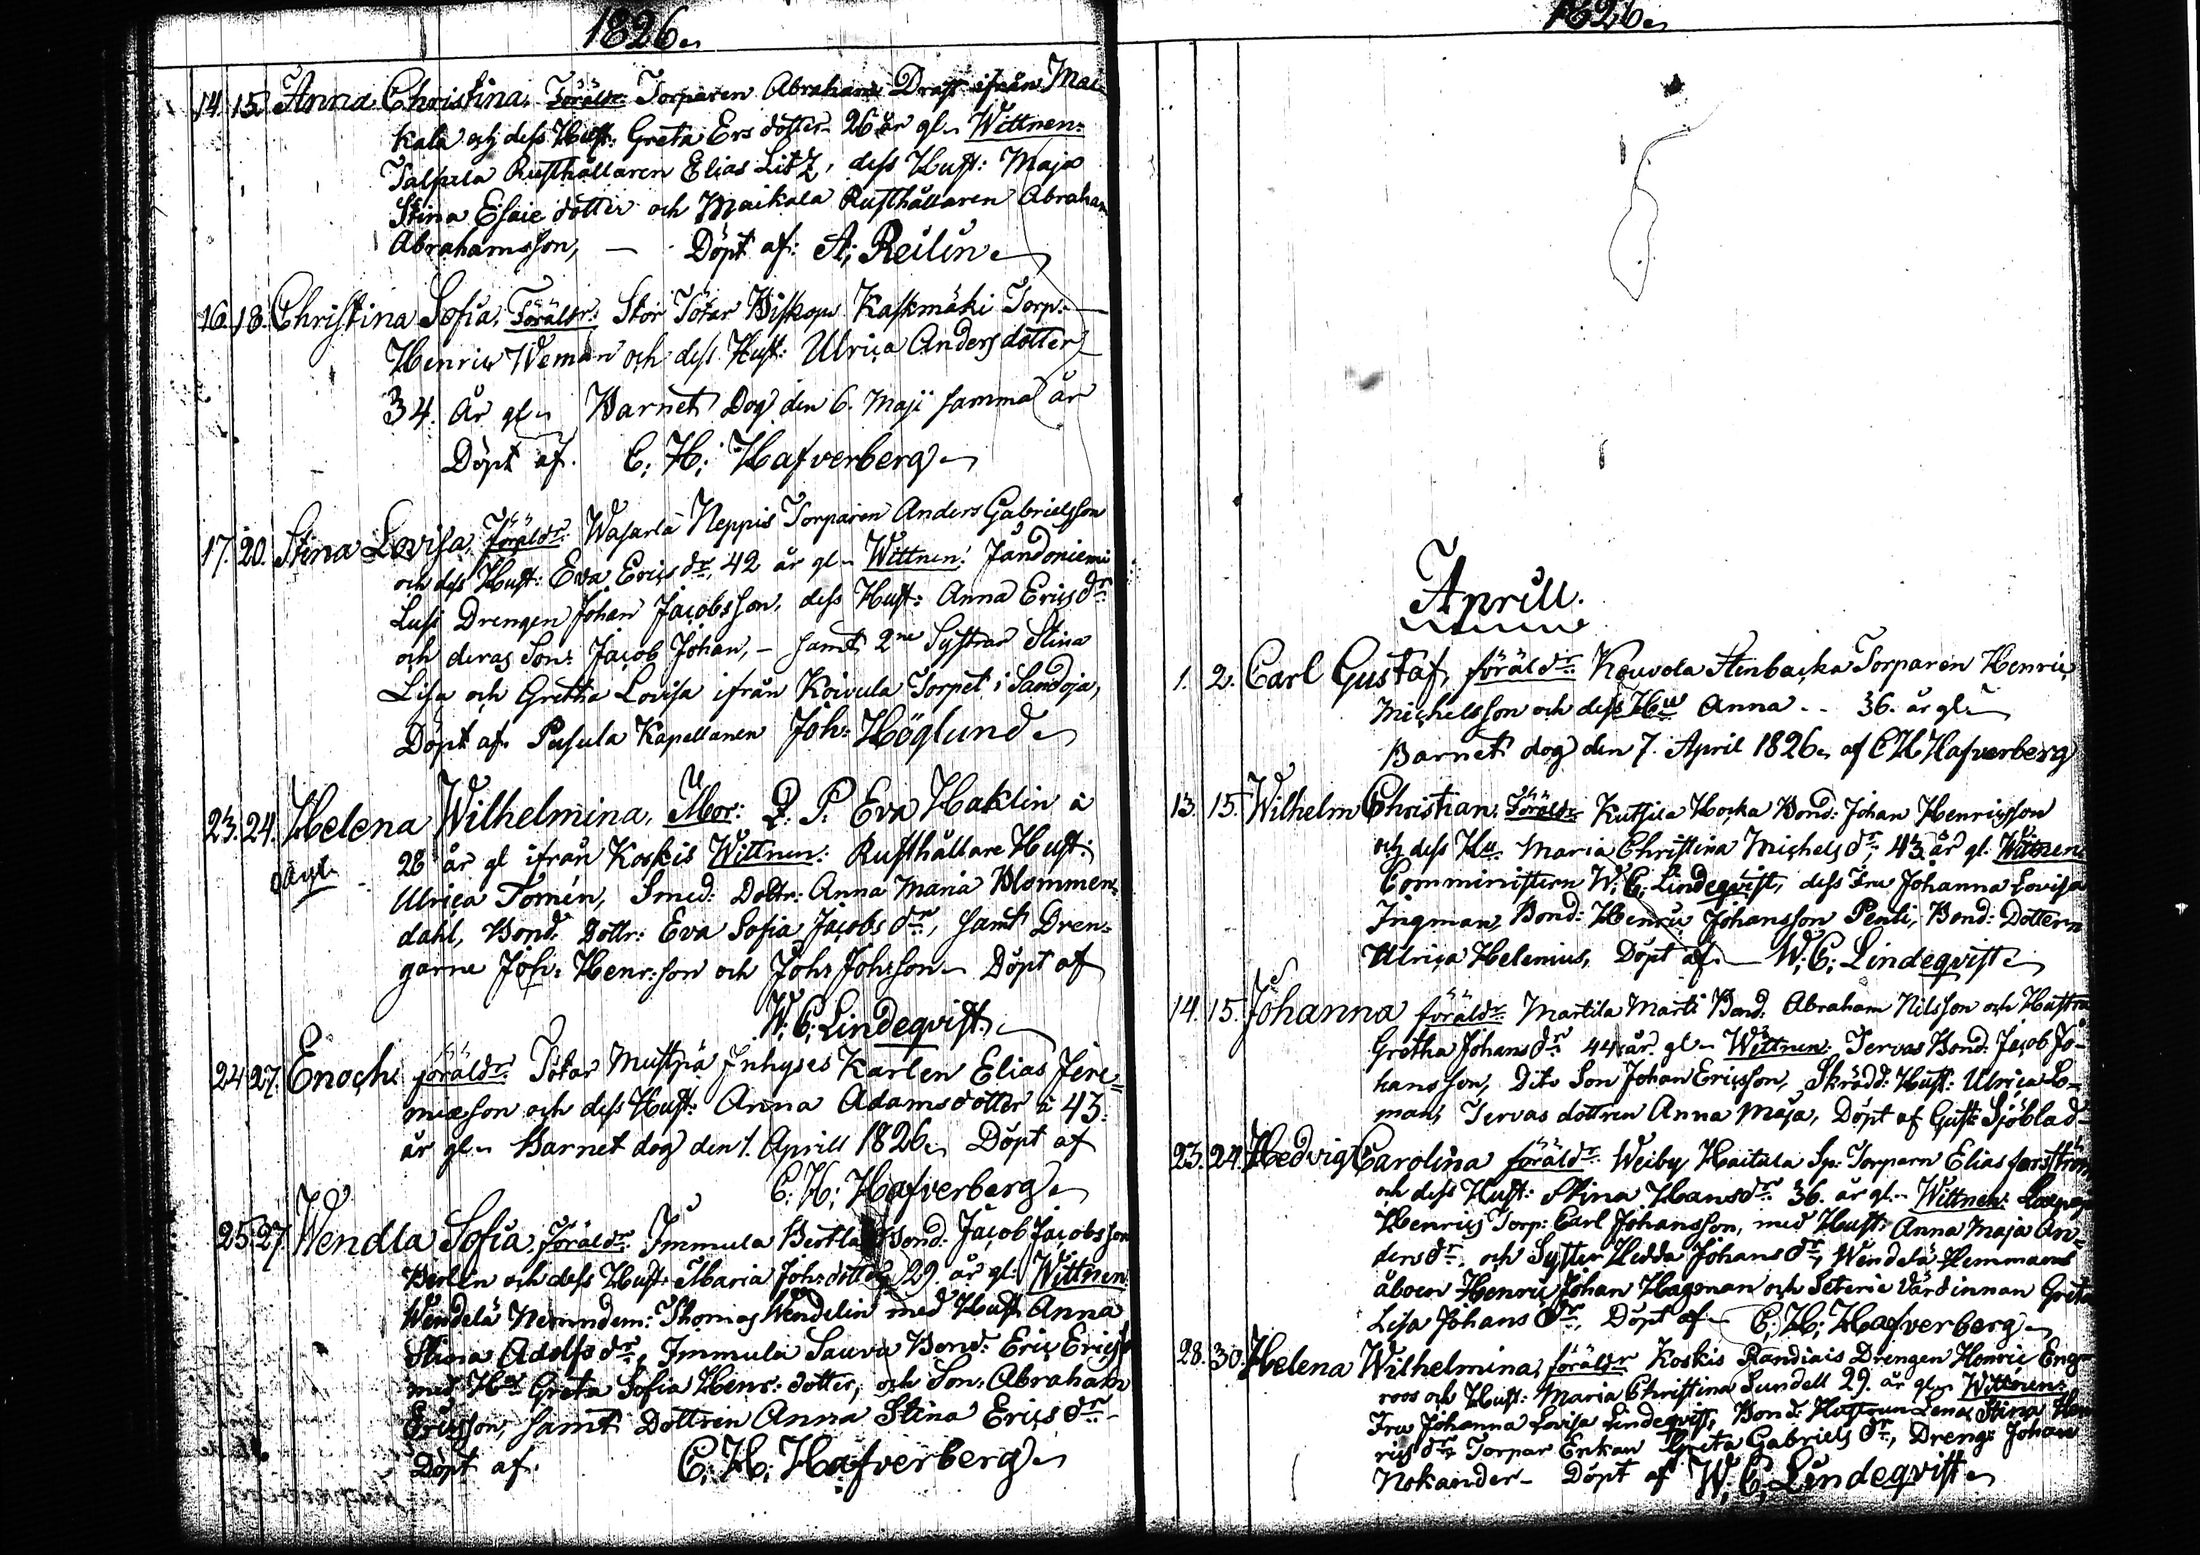 1826.
14. 15. Anna Christina. Föräldr: Torparen Abraham Draft ifrån Mai-
kala och dess Hust: Greta Ersdotter 26 år gl. Wittnen:
Talpela Rusthållaren Elias Litz, dess Hust: Maja
Stina Esaiedotter och Maikala Rusthållaren Abraham
Abrahamsson, — Döpt af: A; Reilin
16. 18. Christina Sofia. Föräldr: Stor Tötar Biskops Kaskmäki Torp.
Henric Weman och dess Hust: Ulrica Andersdotter
34. år gl. Barnet Dog den 6. Maji samma år
Döpt af. C; H; Hafverberg
17. 20. Stina Lovisa, föräldr: Wasarla Neppis Torparen Anders Gabrielsson
och dess Hust: Eva Erics dr, 42 år gl. Wittnen: Jändoniemi
Lusi Drengen Johan Jacobsson, dess Hust: Anna Erics dr
och deras Son: Jacob Johan, — samt 2ne Systrar Stina
Lisa och Gretha Lovisa ifrån Koivula Torpet i Sandoja,
Döpt af. Pusula Kapellanen Joh: Höglund
23. 24. Helena Wilhelmina, Mor: Q. P. Eva Haklin à
oägt 28 år gl ifrån Koskis Wittnen: Rusthållare Hust:
Ulrica Tomén, Smed: Dottr: Anna Maria Blommen-
dahl, Bond. Dottr: Eva Sofia Jacobs dr, samt Dren-
garne Joh: Henr:son och Joh: Joh:son. Döpt af
W. C; Lindeqvist.
24 27. Enoch föräldr: Tötar Mustpä Inhyses Karlen Elias Jere-
miæson och dess Hust: Anna Adamsdotter à 43.
år gl. Barnet dog den 1. Aprill 1826. Döpt af
C; H; Hafverberg
25. 27. Wendla Sofia, föräldr: Immula Bertla Bond: Jacob Jacobsson
Berlin och dess Hust: Maria Joh:dotter 29. år gl: Wittnen
Wendelä Nemndem: Thomas Wendelin med Hust Anna
Stina Adolfs dr, Immula Sauva Bond: Eric Erics
med Hu Greta Sofia Henr: dotter, och Son: Abraham
Ericsson, samt Dottren Anna Stina Erics dr
Döpt af. C; H; Hafverberg
1826.
Aprill.
1. 2. Carl Gustaf, föräldr: Kouvola Stenbacka Torparen Henric
Michelsson och dess Hu Anna - - 36. år gl.
Barnet dog den 7. April 1826. af C H Hafverberg
13. 15. Wilhelm Christian. Föräldr: Kuttila Hocka Bond: Johan Henricsson
och dess Hu: Maria Christina Michels dr, 43. år gl. Wittnen
Comministern W; C; Lindeqvist, dess Fru Johanna Lovisa
Ingman, Bond: Henric Johansson Penti, Bond: Dottern
Ulrica Helenius, Döpt af. W; C; Lindeqvist
14. 15. Johanna föräldr: Martila Marti Bond. Abraham Nilsson och Hustru
Gretha Johans dr 44 år gl. Wittnen: Tervas Bond. Jacob Jo-
hansson, Dito Son Johan Ericsson, Skrädd: Hust: Ulrica Lo-
man, Tervas dottren Anna Maja, Döpt af Gust: Sjöblad
23. 24. Hedvig Carolina föräldr: Weiby Haitula Sp: Torparn Elias forsström
och dess Hust: Stina Hans dr 36. år gl. Wittnen:
Henrics Torp: Carl Johansson, med Hust: Anna Maja An-
ders dr, och Syster Hedda Johans dr, Wendelä Hemmans
åboen Henric Johan Hagman och Seterie Värdinnan Greta
Lisa Johans dr, Döpt af C; H; Hafverberg
28. 30. Helena Wilhelmina, föräldr Koskis Randiais Drengen Henric Eng-
roos och Hust: Maria Christina Sundell 29. år gl. Wittnen:
Fru Johanna Lovisa Lindeqvist, Bond: Hustrun Lena Stina Hen
rics dr, Torpar Enkan Greta Gabriels dr, Dreng: Johan
Nokander. Döpt af W; C; Lindeqvist